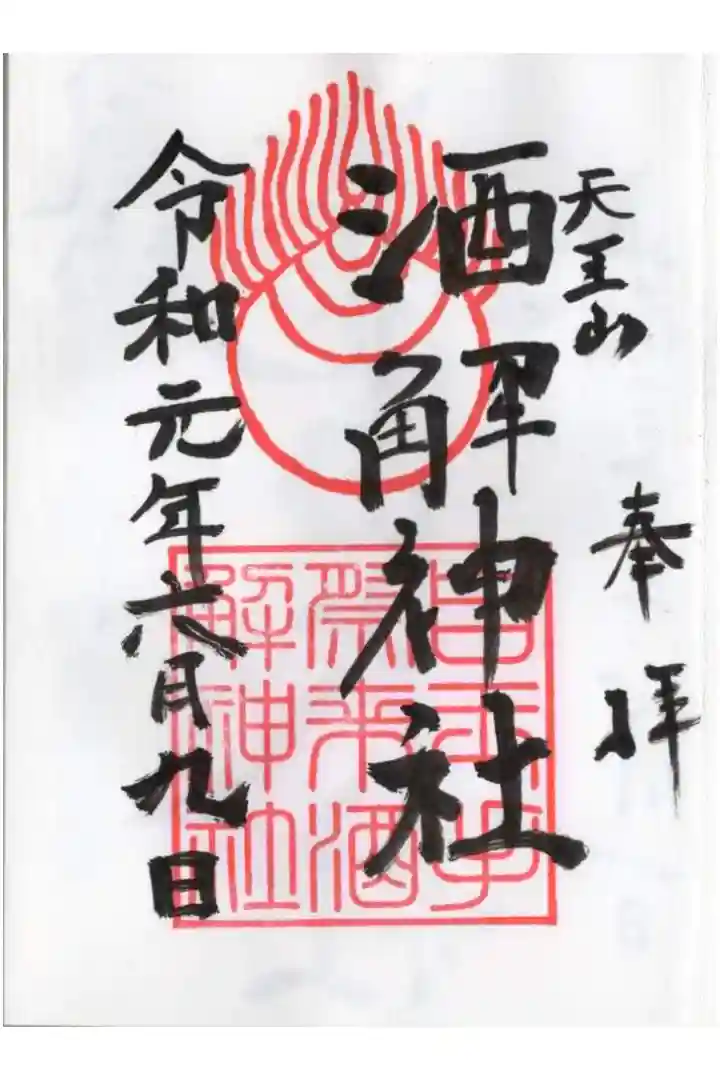 奉拝
天王山
酒解神社
令和元年六月九日
解神社